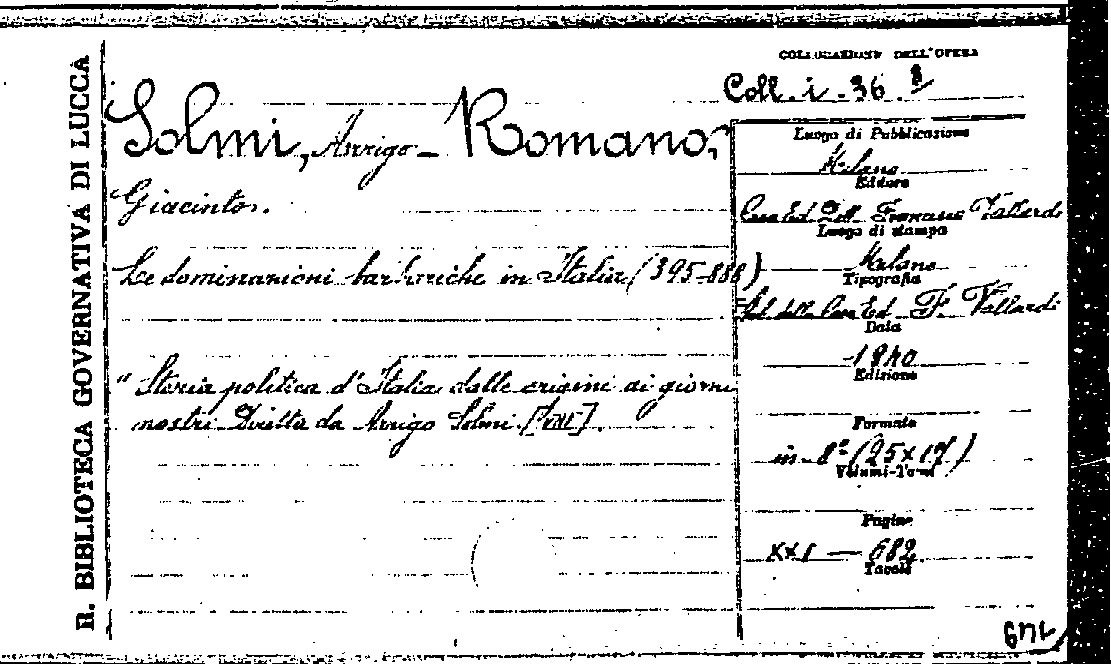 R. BIBLIOTECA GOVERNATIVA DI LUCCA
COLLOCAZIONE DELL'OPERA
Coll. i. 36. 8
Solmi, Arrigo - Romano,
Giacinto.
Le dominazioni barbariche in Italia (395-888)
"Storia politica d'Italia dalle origini ai giorni
nostri Diretta da Arrigo Solmi.
Luogo di Pubblicazione
Milano
Editore
Casa Ed. Dott. Francesco Vallardi
Luogo di stampa
Milano
Tipografia
della Casa Ed. F. Vallardi
Data
1940
Edizione
Formato
in-8° (25x17)
Volumi-Tomi
Pagine
XXI — 682
Tavole